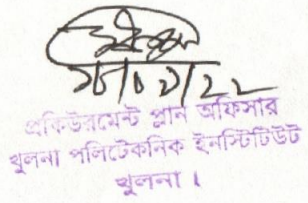 প্রকিউরমেন্ট প্লান অফিসার
খুলনা পলিটেকনিক ইনস্টিটিউট
খুলনা ।